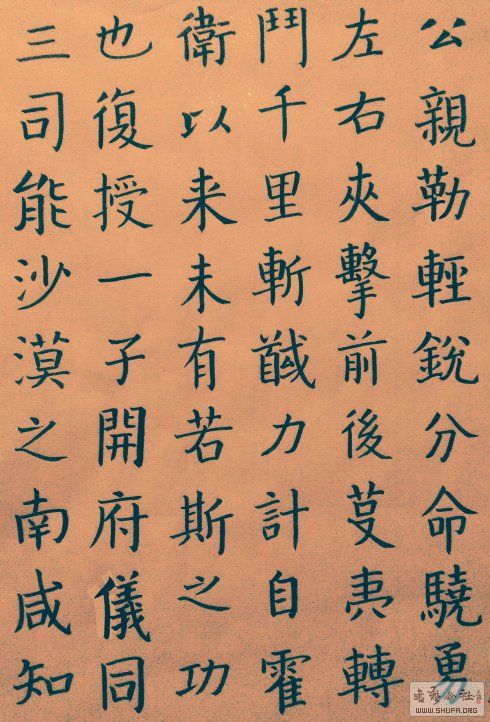 公親勒輕銳分命驍勇
左右夾擊前後芟夷轉
鬥千里斬馘力計自霍
衛以来未有若斯之功
也復授一子開府儀同
三司能沙漠之南咸知
WWW.SHUFA.ORG